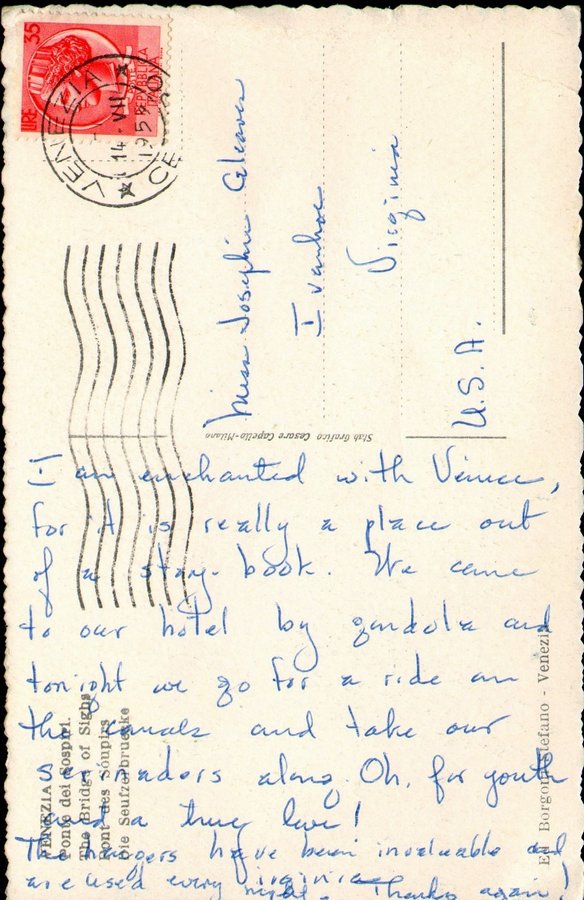 35
LIRE
REPUBBLICA
VENEZIA
14·VII
1954
Miss Josephine Gleaves
Ivanhoe
Virginia
U.S.A.
Stab Grafico Cesare Capello-Milano
I am enchanted with Venice,
for it is really a place out
of a story-book. We came
to our hotel by gondola and
tonight we go for a ride on
the canals and take our
serenaders along. Oh, for youth
and a true love!
The hangers have been invaluable and
are used every night. Thanks again!
Virginia
VENEZIA
Ponte dei Sospiri.
The Bridge of Sighs
Pont des Soupirs
Die Seufzerbruecke
Ed Borgoni Stefano - Venezia